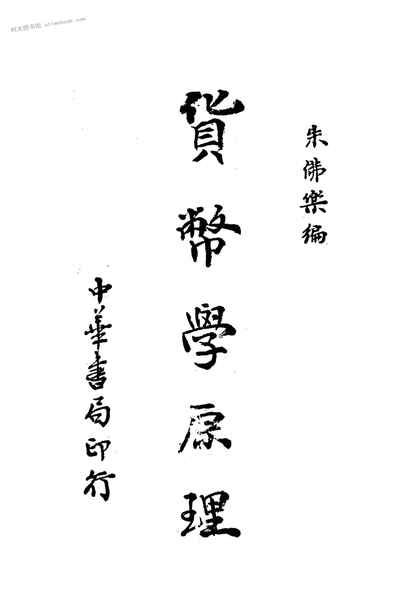 朱佛樂編
貨幣學原理
中華書局印行